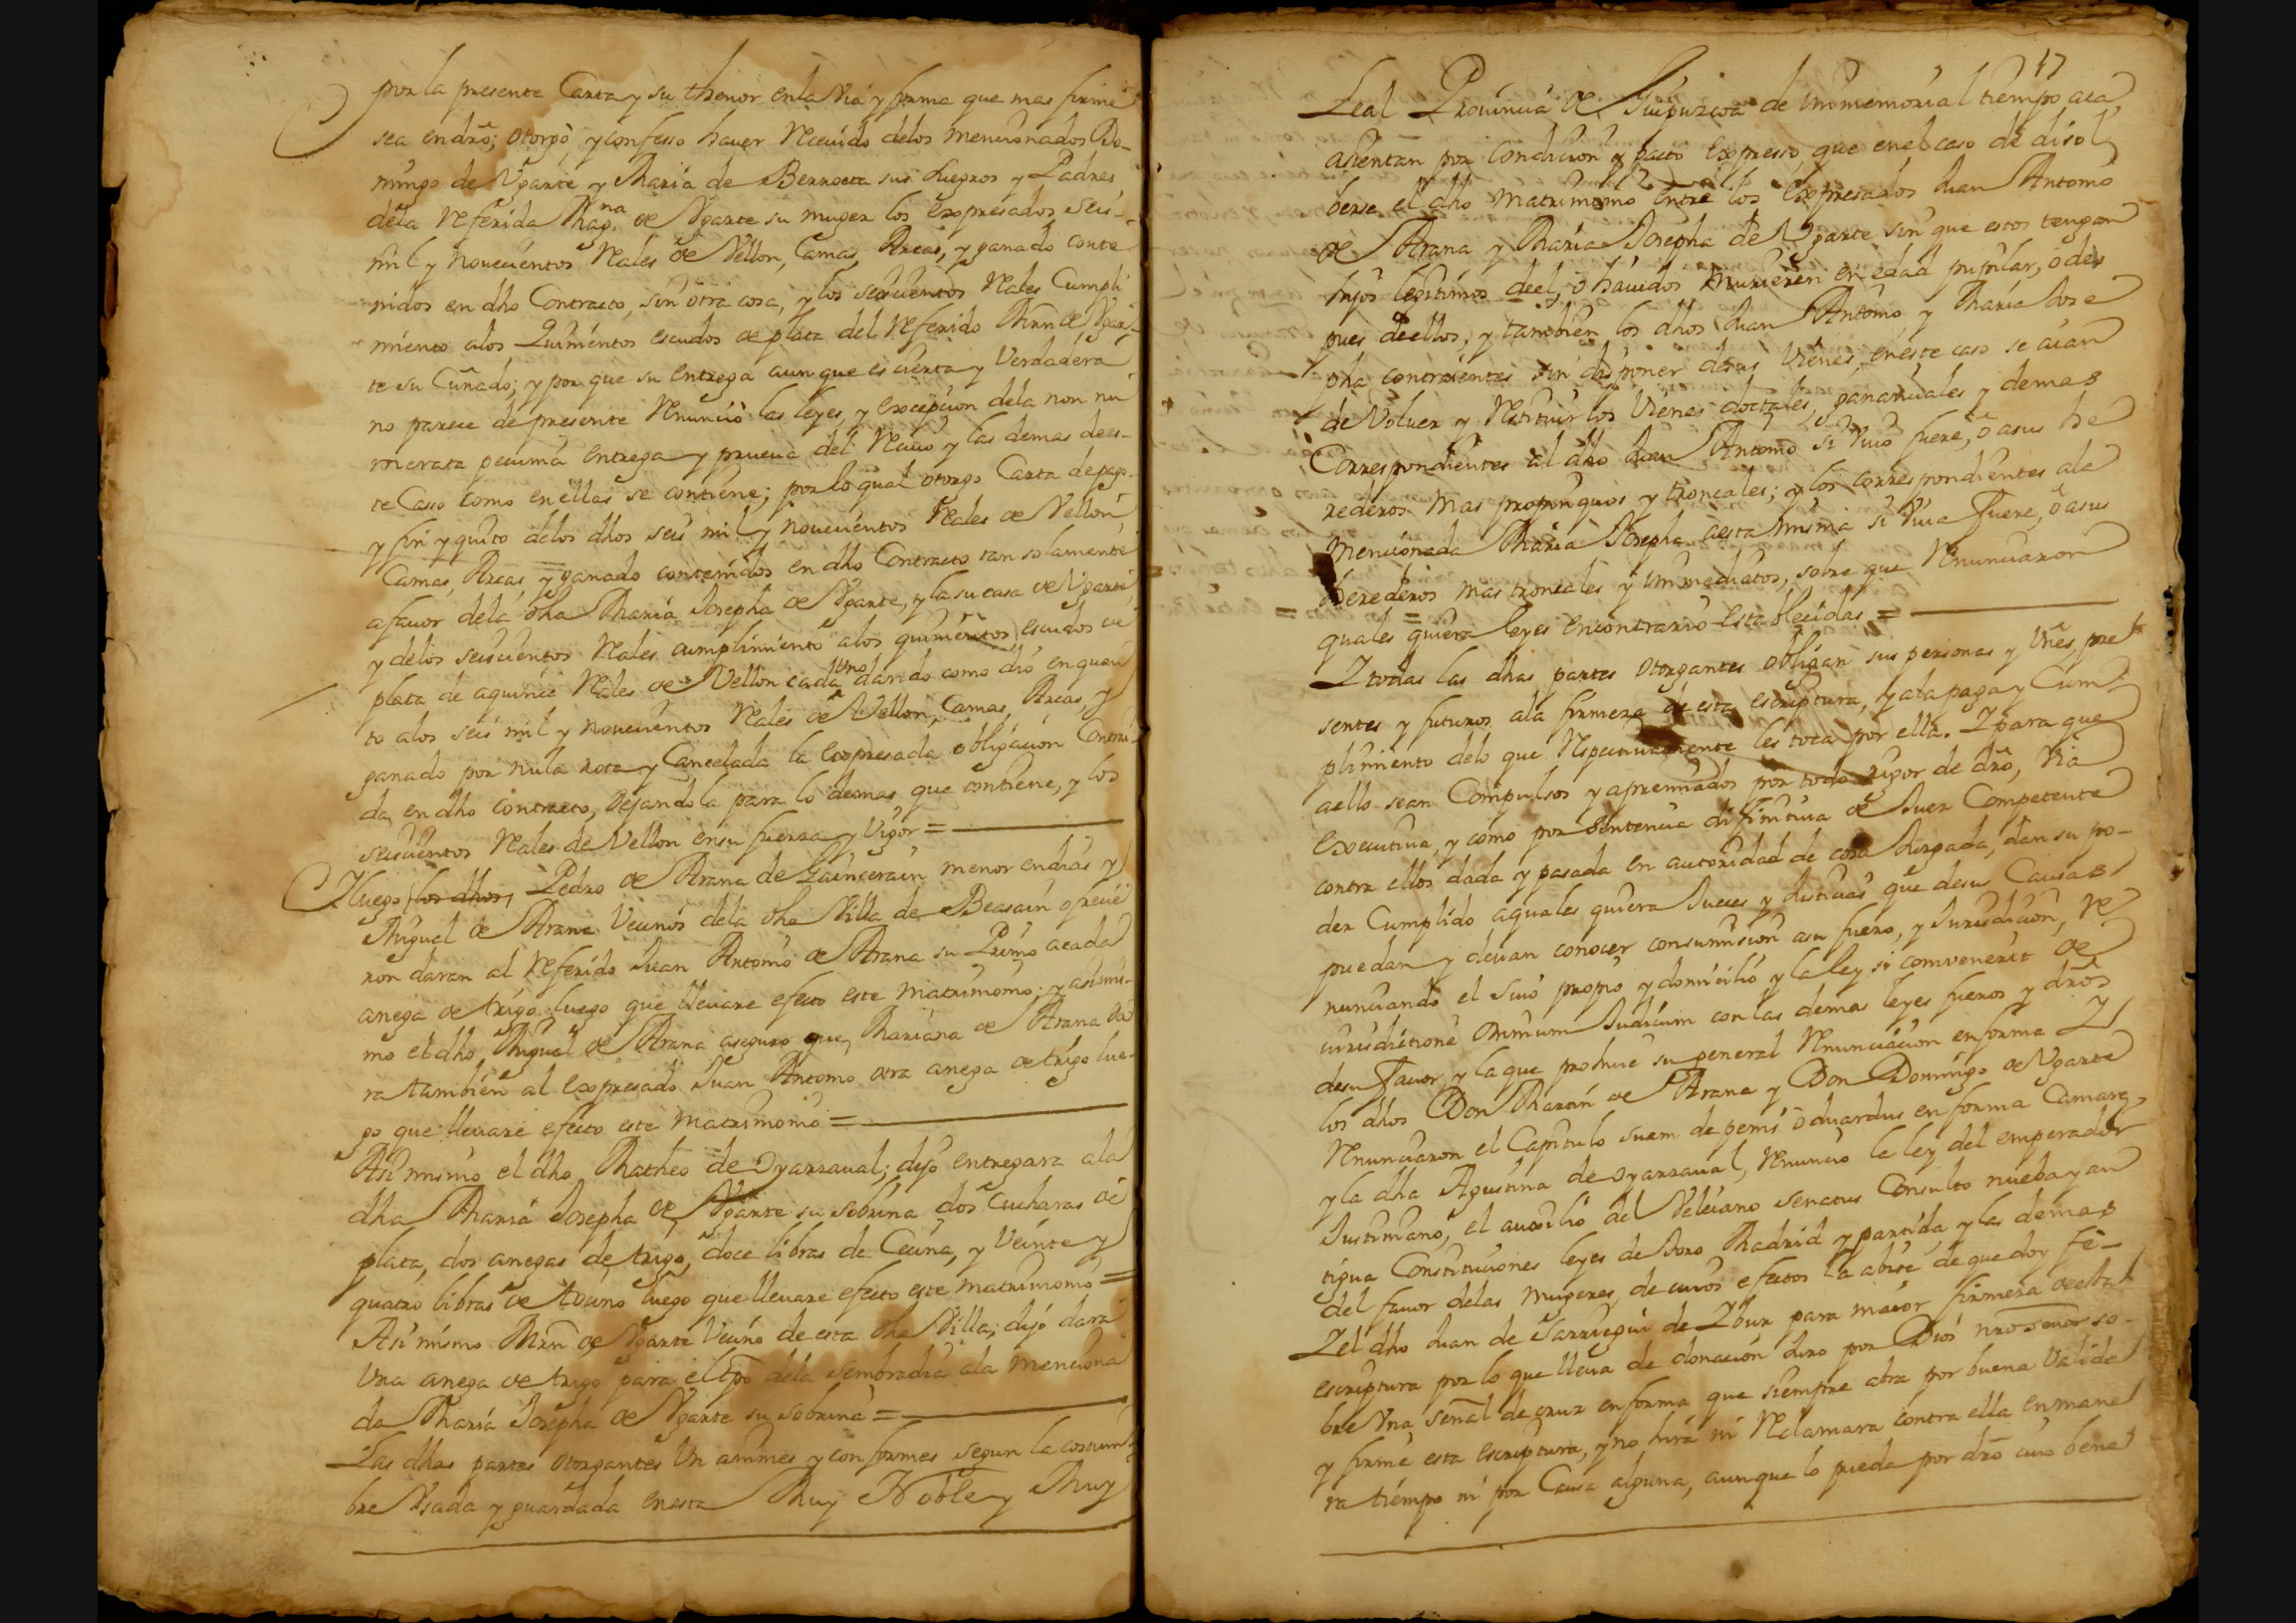 por la presente Carta y su thenor en la Via y forma que mas firme
sea en drõ; otorgò, y confesso hauer Receuido delos mencionados Do-
mingo de Vgarte y Maria de Berroeta sus suegros y Padres
dela Referida Mag.na de Vgarte su muger los expresados seis-
mil y nouecientos Reales de Vellon, Camas, Arcas, y ganado conte
nidos en dho Contracto, sin otra cosa, y los seiscientos Reales Cumpli
miento alos Quinientos escudos de plata del Referido Mrñ de Vgar-
te su Cuñado; y por que su entrega aunque es cierta y Verdadera
no parece de presente Renunciò las leyes, y excepcion dela non nu
merata pecunia entrega y prueua del Reciuo y las demas de es-
te Caso como en ellas se contiene; por lo qual otorgo Carta de pago
y fin y quito delos dhos seis mil y nouecientos Reales de Vellon
Camas, Arcas, y ganado contenidos en dho Contracto tan solamente
a fauor dela dha Maria Josepha de Vgarte, y la su casa de Vgarte,
y delos seiscientos Reales cumplimiento alos quinientos escudos de
plata de aquince Reales de Vellon cada Uno dando como diò en quan
to alos seis mil y nouecientos Reales de Vellon, Camas, Arcas, y
ganado por nula rota y Cancelada la expresada obligacion Conteni-
da, en dho contracto, dejandola para lo demas que contiene, y los
seiscientos Reales de Vellon en su fuerza y Vigor =
Yluego los dhos, Pedro de Arana de Gaincerain menor en dias y
Miguel de Arana Vecinos dela dha Villa de Beasain ofrecie
ron daran al Referido Juan Antonio de Arana su Primo acada
anega de trigo luego que lleuare efecto este Matrimonio; y asimis-
mo el dho Miguel de Arana aseguro que Mariana de Arana da
ra tambien al expresado Juan Antonio otra anega de trigo lue-
go que lleuare efecto este Matrimonio =
Asi mismo el dho Matheo de Oyarzaual; dijo entregara ala
dha Maria Josepha de Vgarte su sobrina dos Cucharas de
plata, dos anegas de trigo, doce libras de Cecina, y Veinte y
quatro libras de tocino luego que lleuare efecto este matrimonio =
Asi mismo Mrñ de Vgarte Vecino de esta dha Villa; dijo dara
Vna anega de trigo para el tp̃o dela sembradia ala menciona
da Maria Josepha de Vgarte su sobrina =
Las dhas partes otorgantes Vn animes y conformes segun la costum
bre Vsada y guardada en esta Muy Noble y Muy
17
Leal Prouincia de Guipuzcoa de Inmemorial tiempo aca,
asientan por condicion y pacto expresso, que en el caso de disol
berse el dho Matrimonio entre los expresados Juan Antonio
de Arana y Maria Josepha de Vgarte sin que estos tengan
hijos legitimos deel, ò hauidos murieren en edad pupilar, ò des
pues deellos, y tambien los dhos Juan Antonio y Maria Jose
pha contraientes sin disponer desus Vienes, eneste caso se aian
de Voluer y Restituir los Vienes doctales, gananciales y demas
Correspondientes al dho Juan Antonio si Viuo fuere, ò asus he
rederos mas propinquos y troncales; y los correspondientes ala
mencionada Maria Josepha aesta misma si Viua fuere, ò asus
herederos mas troncales y inmediatos, sobre que Renunciaron
quales quiera leyes encontrario establecidas =
Y todas las dhas partes otorgantes obligan sus personas y Vñes, pre
sentes y futuros ala firmeza de esta escriptura, y ala paga y Cum
plimiento delo que Respectiuamente les toca por ella. Y para que
aello sean Compulsos y apremiados por todo rigor de drõ, Via
executiua, y como por sentencia difinitiua de Juez Competente
contra ellos dada y pasada en autoridad de cosa Juzgada, dan su po-
der Cumplido aquales quiera Jueces y Justicias que desus Causas
puedan y deuan conocer consumision asu fuero, y Jurisdicion, Re
nunciando el suio propio y domicilio y la ley si combenerit de
iurisdictione omnium Judicum con las demas leyes fueros y drõs
desu fauor y la que prohiue su general Renunciacion en forma Y
los dhos Don Martin de Arana y Don Domingo de Vgarte
Renunciaron el Capitulo suam de penis òduardus en forma Camare,
y la dha Agustina de Oyarzaual, Renuncio la ley del emperador
Justiniano, el auxilio del Veleiano senatus Consulto nueba y an
tigua Constituciones leyes de toro Madrid y partida y las demas
del fauor delas Mugeres, de cuios efectos la abisè de que doy fè-
Y el dho Juan de Sarriegui de Ybur para maior firmeza deesta
escriptura por lo que lleua de donacion Juro por Dios nrõ señor so-
bre Vna señal de cruz en forma que siempre abra por buena Valida
y firme esta escriptura, y no hira ni Reclamara contra ella en mane
ra tiempo ni por Causa alguna, aunque lo pueda por drõ cuio bene